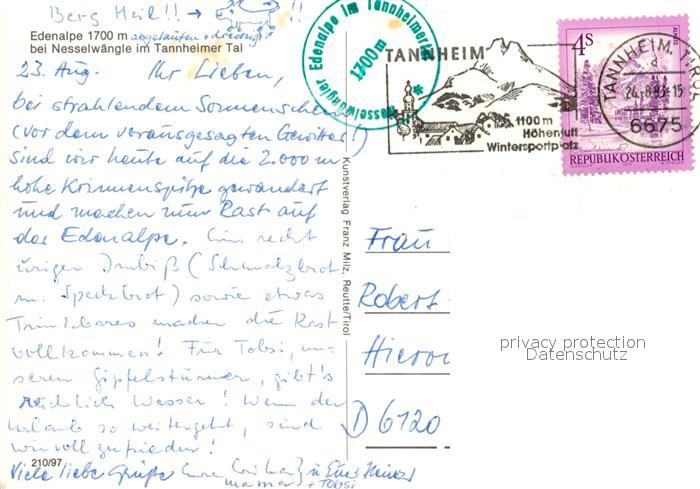 Berg Heil!! →
Edenalpe 1700 m abgelaufen + dreckig!!
bei Nesselwängle im Tannheimer Tal
23. Aug. Ihr Lieben,
bei strahlendem Sonnenschein
(vor dem vorausgesagten Gewitter!)
sind wir heute auf die 2.000 m
hohe Krinnenspitze gewandert
und machen nun Rast auf
der Edenalpe. Ein recht
uriger Imbiß (Schmalzbrot
m. Speckbrot) sowie etwas
Trinkbares machen die Rast
vollkommen! Für Tobsi, un-
seren Gipfelstürmer, gibt's
reichlich Wasser! Wenn der
Urlaub so weitergeht, sind
wir voll zufrieden!
Viele liebe Grüße Eure u. Euer Heiner
Mama + Tobsi
210/97
Kunstverlag Franz Milz, Reutte/Tirol
Nesselwängler Edenalpe im Tannheimertal
1700m
TANNHEIM
1100 m
Höhenluft
Wintersportplatz
4S
REPUBLIK ÖSTERREICH
TANNHEIM, TIROL
a
24.-8.83-15
6675
Frau
Robert-
D 6120
privacy protection
Datenschutz